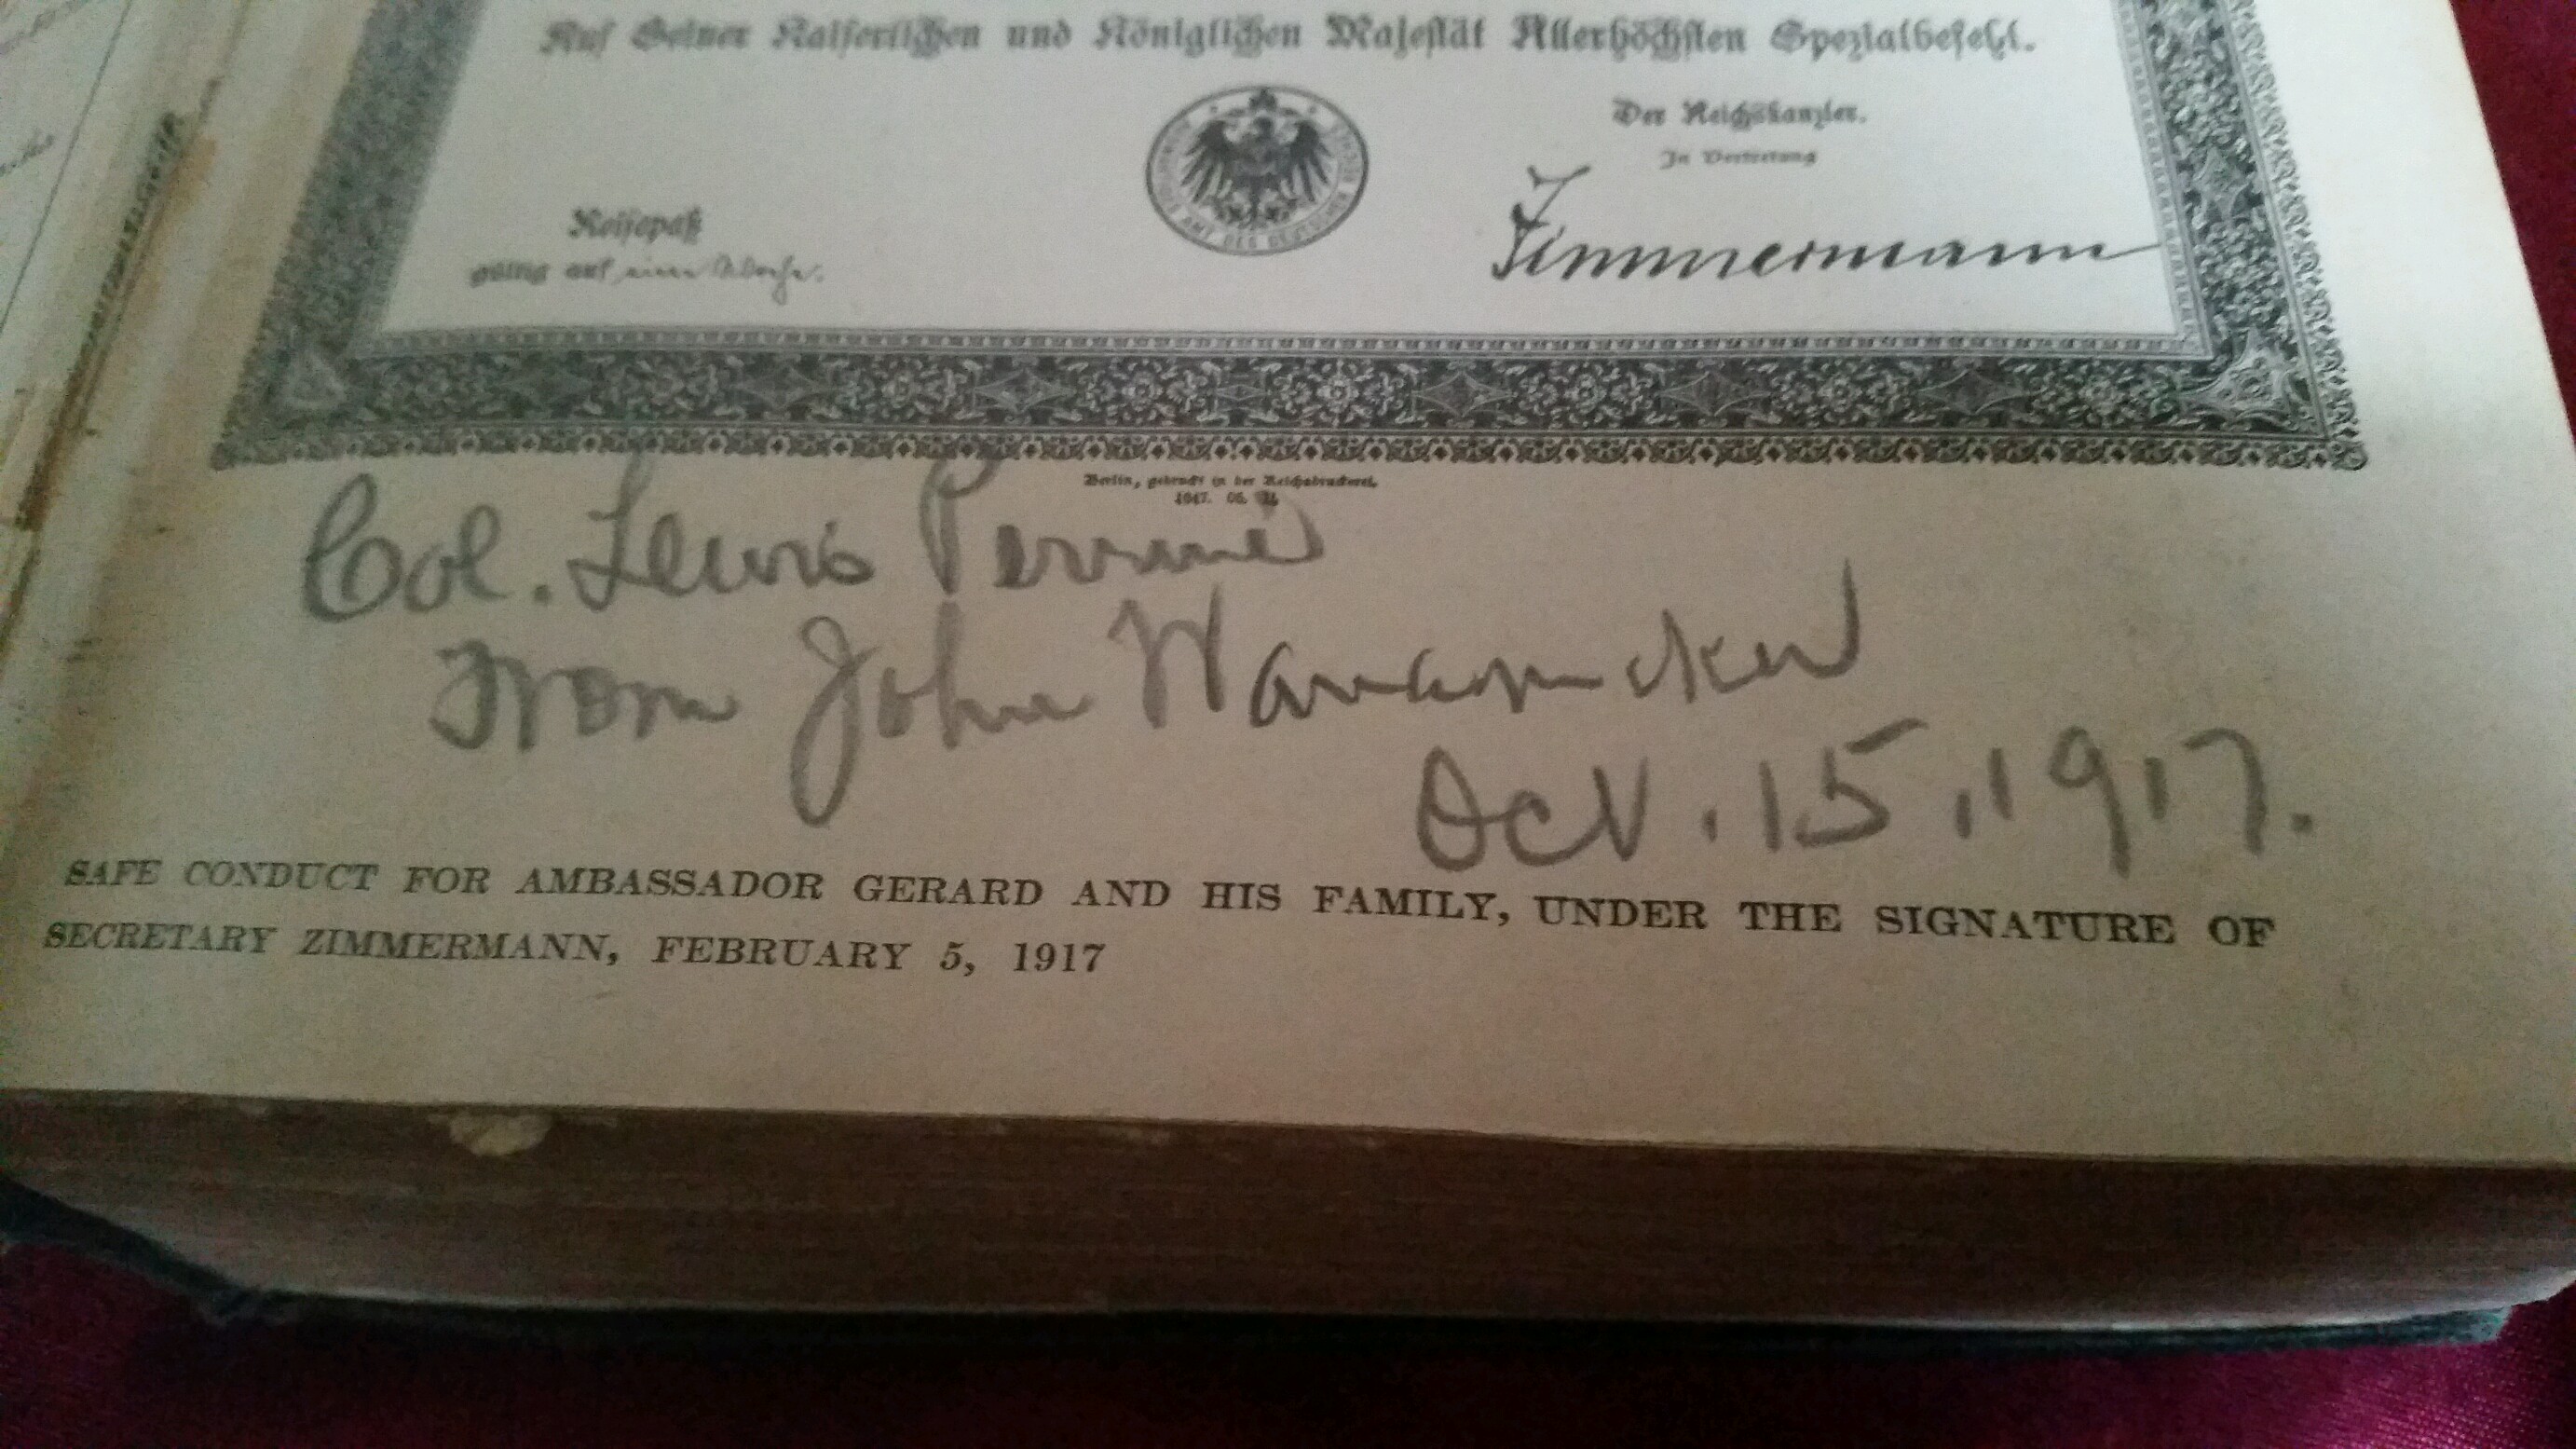 Auf Seiner Kaiserlichen und Königlichen Majestät Allerhöchsten Spezialbefehl.
Der Reichskanzler.
In Vertretung
Zimmermann
AUSWÄRTIGES AMT DES DEUTSCHEN REICHS
Reisepaß
gültig auf eine Woche.
Berlin, gedruckt in der Reichsdruckerei.
Col. Lewis Perrine
From John Wanamaker
Oct. 15, 1917.
SAFE CONDUCT FOR AMBASSADOR GERARD AND HIS FAMILY, UNDER THE SIGNATURE OF
SECRETARY ZIMMERMANN, FEBRUARY 5, 1917